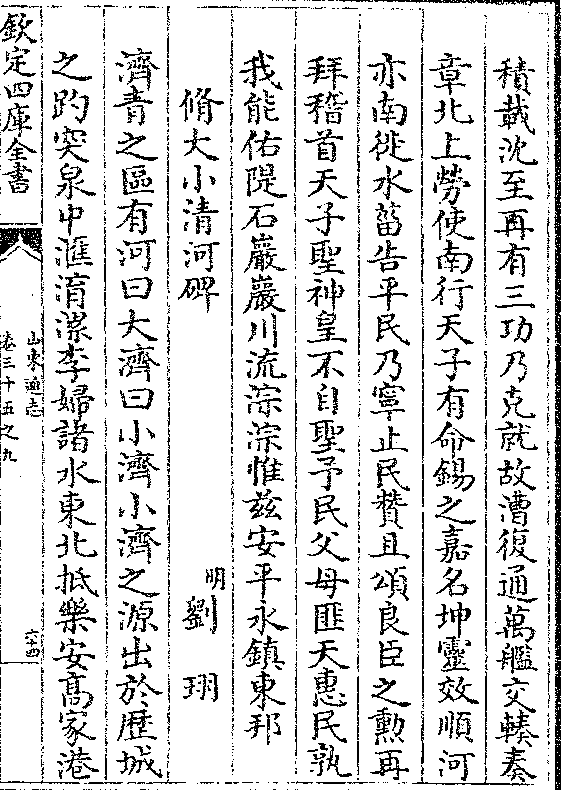 積載沈至再有三功乃克就故漕復通萬艦交輳奏
章北上勞使南行天子有命錫之嘉名坤靈效順河
亦南徙水菑告平民乃寧止民贊且頌良臣之勲再
拜稽首天子聖神皇不自聖予民父母匪天惠民孰
我能佑隄石巖巖川流淙淙惟兹安平永鎮東邦
脩大小清河碑
明劉珝
濟青之區有河曰大濟曰小濟小濟之源出於歴城
之趵突泉中滙淯漯李婦諸水東北抵樂安髙家港
欽定四庫全書
山東通志
卷三十五之九
六十四